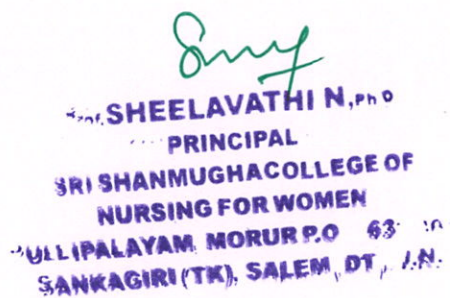 Prof. SHEELAVATHI N, Ph D
PRINCIPAL
SRI SHANMUGHACOLLEGE OF
NURSING FOR WOMEN
PULLIPALAYAM, MORUR P.O
SANKAGIRI (TK), SALEM DT, T.N.